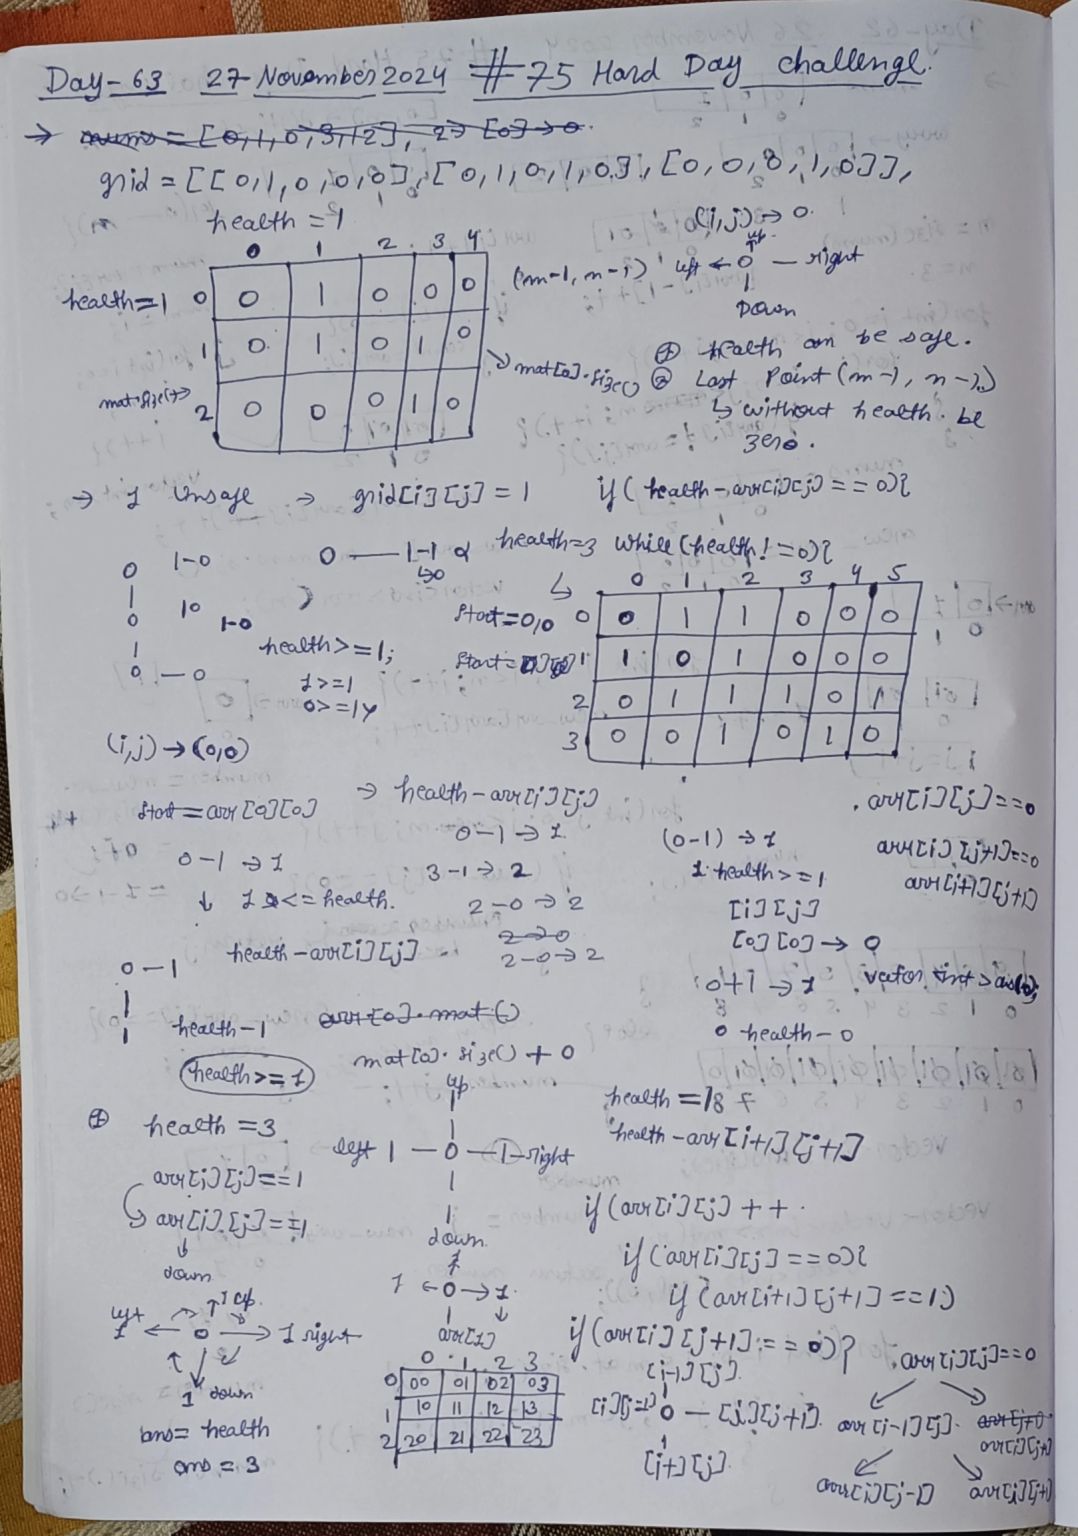 Day-63 27 November 2024 # 75 Hard Day challenge.
→ nums = [0,1,0,3,12], 2→ [0]→0.
grid = [[0,1,0,0,0],[0,1,0,1,0],[0,0,0,1,0]],
health = 1
(i,j)→0.
0 1 2 3 4
up
health=1 0 0 1 0 0 0
(m-1, n-1) left ← 0 — right
Down
1 0 1 0 1 0
mat[0].size()
mat.size()→
2 0 0 0 1 0
① health can be safe.
② Last Point (m-1, n-1)
↳ without health be
zero.
→ 1 Unsafe → grid[i][j] = 1 if( health-arr[i][j] == 0){
0 1-0 0 — 1-1
↳0
health=3 while(health!=0){
0 1 2 3 4 5
start=0,0 0 0 1 1 0 0 0
0 10 1-0
health>=1;
start= 1 1 0 1 0 0 0
0 — 0
1>=1
0>=1
2 0 1 1 1 0 1
3 0 0 1 0 1 0
(i,j)→(0,0)
start=arr[0][0]
→ health-arr[i][j]
. arr[i][j]==0
0-1→1
(0-1)→1
arr[i][j+1]==0
0-1→1
3-1→2
1 health>=1
arr[i+1][j+1]
↓ 1 <= health.
2-0→2
[i][j]
2→0
2-0→2
[0][0]→0
0-1
health-arr[i][j]
0+1→1
health-1
arr[0].mat()
0 health-0
(health>=1)
mat[0].size() + 0
up
health =
health-arr[i+1][j+1]
① health =3
left 1 — 0 — 1-right
arr[i][j]==1
arr[i][j]==1
↓
down
down
if (arr[i][j] ++.
if (arr[i][j]==0){
if (arr[i+1][j+1]==1)
left ↑1 up.
1 ← 0 → 1 right
1 down
1
1 ←0→1
arr[1]
if (arr[i][j+1]==0)?
[i-1][j].
. arr[i][j]==0
0 1 2 3
0 00 01 02 03
1 10 11 12 13
2 20 21 22 23
[i][j-1] 0 — [i][j+1].
[i+1][j].
arr[i-1][j].
arr[i][j-1]
arr[i][j+1]
ans= health
ans = 3